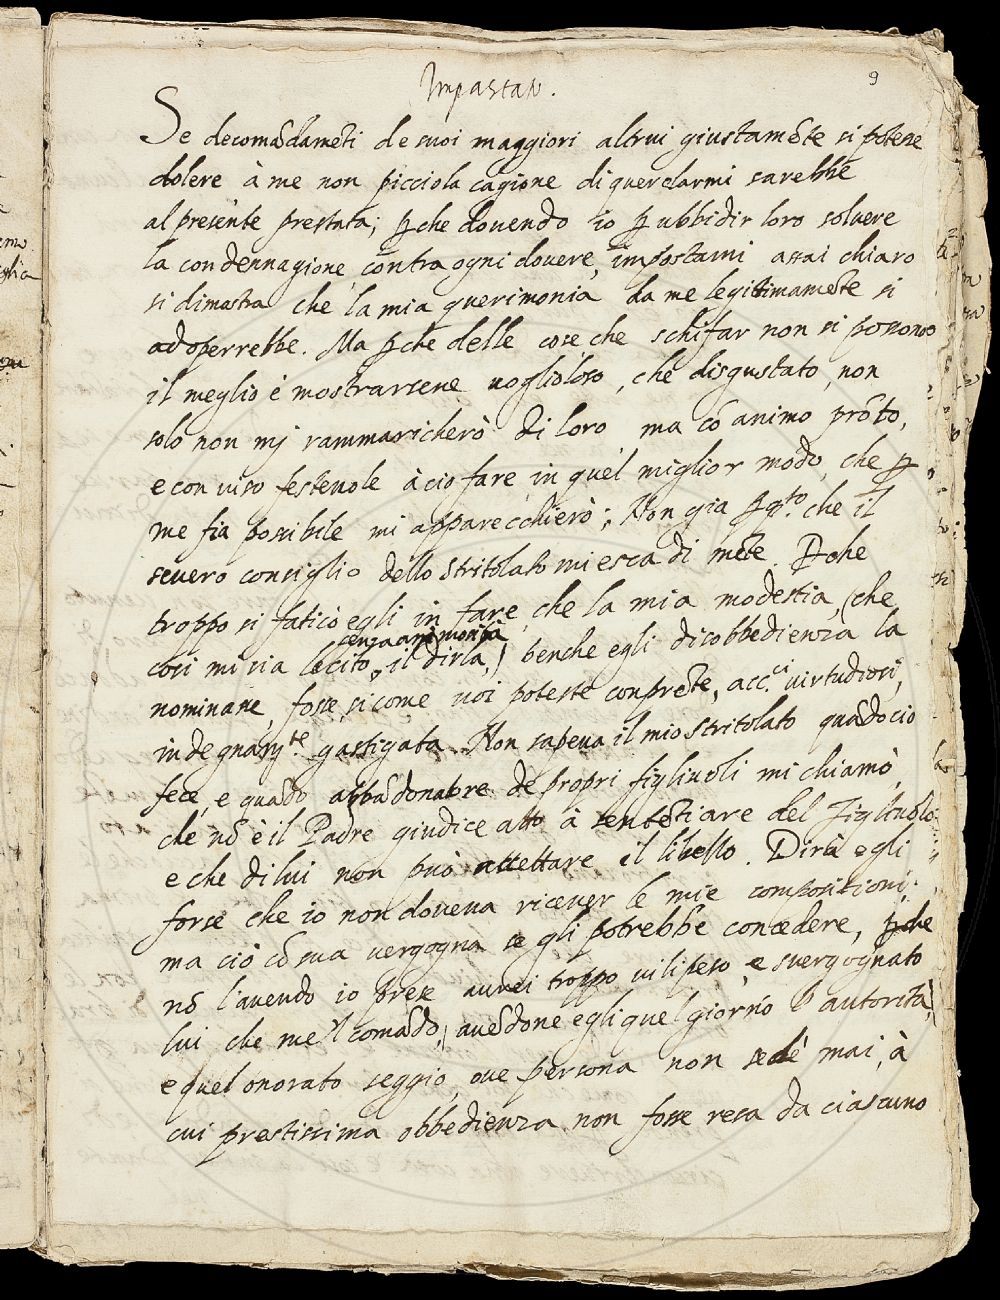 Impastato.
9
Se decomãdamẽti de suoi maggiori altrui giustamẽte si potesse
dolere à me non picciola cagione di querelarmi sarebbe
al presente prestata; ꝑche dovendo io ꝑ ubbidir loro solvere
la condennagione contra ogni dovere impostami assai chiaro
si dimostra che la mia querimonia da me legittimamẽte si
adoperrebbe. Ma ꝑche delle cose che schifar non si possono
il meglio è mostrarsene voglioloso, che disgustato, non
solo non mj rammaricherò di loro ma cõ animo prõto,
e con viso festevole à cio fare in quel miglior modo che ꝑ
me fia possibile mi apparecchierò; Non gia ꝑqto. che il
severo consiglio dello Stritolato mi esca di mẽte. Pche
troppo si faticò egli in fare, che la mia modestia, (che
senza animosità
cosi mi sia lecito il dirla,) benche egli disobbedienza la
nominasse, fosse, si come voi poteste conprẽte, acc.ci virtudiosi,
indegnam.te gastigata. Non sapeva il mio stritolato quãdo cio
fece, e quãdo abbãdonatore de propri figliuoli mi chiamò,
che nõ è il Padre giudice atto à sentẽtiare del figliuolo
e che di lui non può accettare il libello. Dirà egli
forse che io non doveva ricever le mie compositioni;
ma ciò cõ sua vergogna se gli potrebbe concedere, ꝑche
nõ l'avendo io prese avrei troppo vilipeso, e svergognato
lui che me'l comãdò, avẽdone egli quel giorno l'autorità,
e quel onorato seggio, ove persona non sedè mai, à
cui prestissima obbedienza non fosse resa da ciascuno